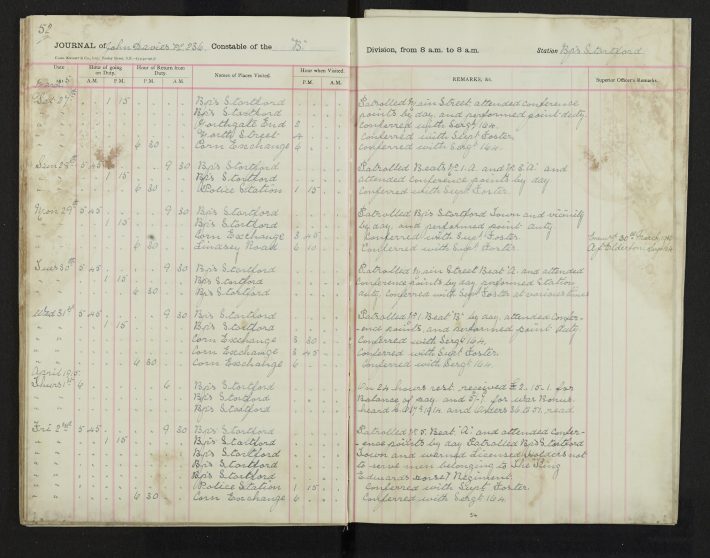 52
JOURNAL of John Davies No 236. Constable of the "B" Division, from 8 a.m. to 8 a.m. Station Bp's Stortford
Date Hour of going on Duty. Hour of Return from Duty. Names of Places Visited. Hour when Visited. REMARKS, &c. Superior Officer's Remarks.
A.M. P.M. A.M. P.M. P.M. A.M.
Sat 27th 1 15 Bp's Stortford Patrolled Main Street attended conference
" " Bp's Stortford points by day, and performed point duty
" " Northgate End 3 Conferred with Sergt 164.
" " North Street 4 Conferred with Supt Foster.
" " 6 30 Corn Exchange 6 Conferred with Sergt 164.
Sun 28th 5 45 9 30 Bp's Stortford Patrolled Beats No 1. A. and No 5 "A" and
" " 1 15 Bp's Stortford attended Conference points by day
" " 6 30 Police Station 1 15 Conferred with Supt Foster.
Mon 29th 5 45 9 30 Bp's Stortford Patrolled Bp's Stortford Town and vicinity
" " 1 15 Bp's Stortford by day, and performed point duty
" " Corn Exchange 3 45 Conferred with Supt Foster. 30th March 1915
" " 6 30 Lindsey Road 6 10 Conferred with Supt Foster
Tues 30th 5 45 9 30 Bp's Stortford Patrolled Main Street Beat "A" and attended
" " 1 15 Bp's Stortford Conference points by day, performed Station
" " 6 30 Bp's Stortford duty, Conferred with Supt Foster at various times
Wed 31st 5 45 9 30 Bp's Stortford Patrolled No 1 Beat "B" by day, attended Confer-
" " 1 15 Bp's Stortford -ence points, and performed point duty
" " Corn Exchange 3 30 Conferred with Sergt 164.
" " Corn Exchange 3 45 Conferred with Supt Foster.
" " 6 30 Corn Exchange 6 Conferred with Sergt 164.
April 1915
Thurs 1st 6 6 Bp's Stortford On 24 hours rest, received £2.15.1. for
" " Bp's Stortford Balance of pay and 5/-. for War Bonus.
" " Bp's Stortford heard and Orders 36 to 51. read
Fri 2nd 5 45 9 30 Bp's Stortford Patrolled No 5. Beat "A" and attended Confer-
" " 1 15 Bp's Stortford -ence points by day Patrolled Bp's Stortford
" " Bp's Stortford Town and warned licensed holders not
" " Bp's Stortford to serve men belonging to The King
" " Bp's Stortford Edwards Horse Regiment.
" " Police Station 1 15 Conferred with Supt Foster.
" " 6 30 Corn Exchange 6 Conferred with Sergt 164